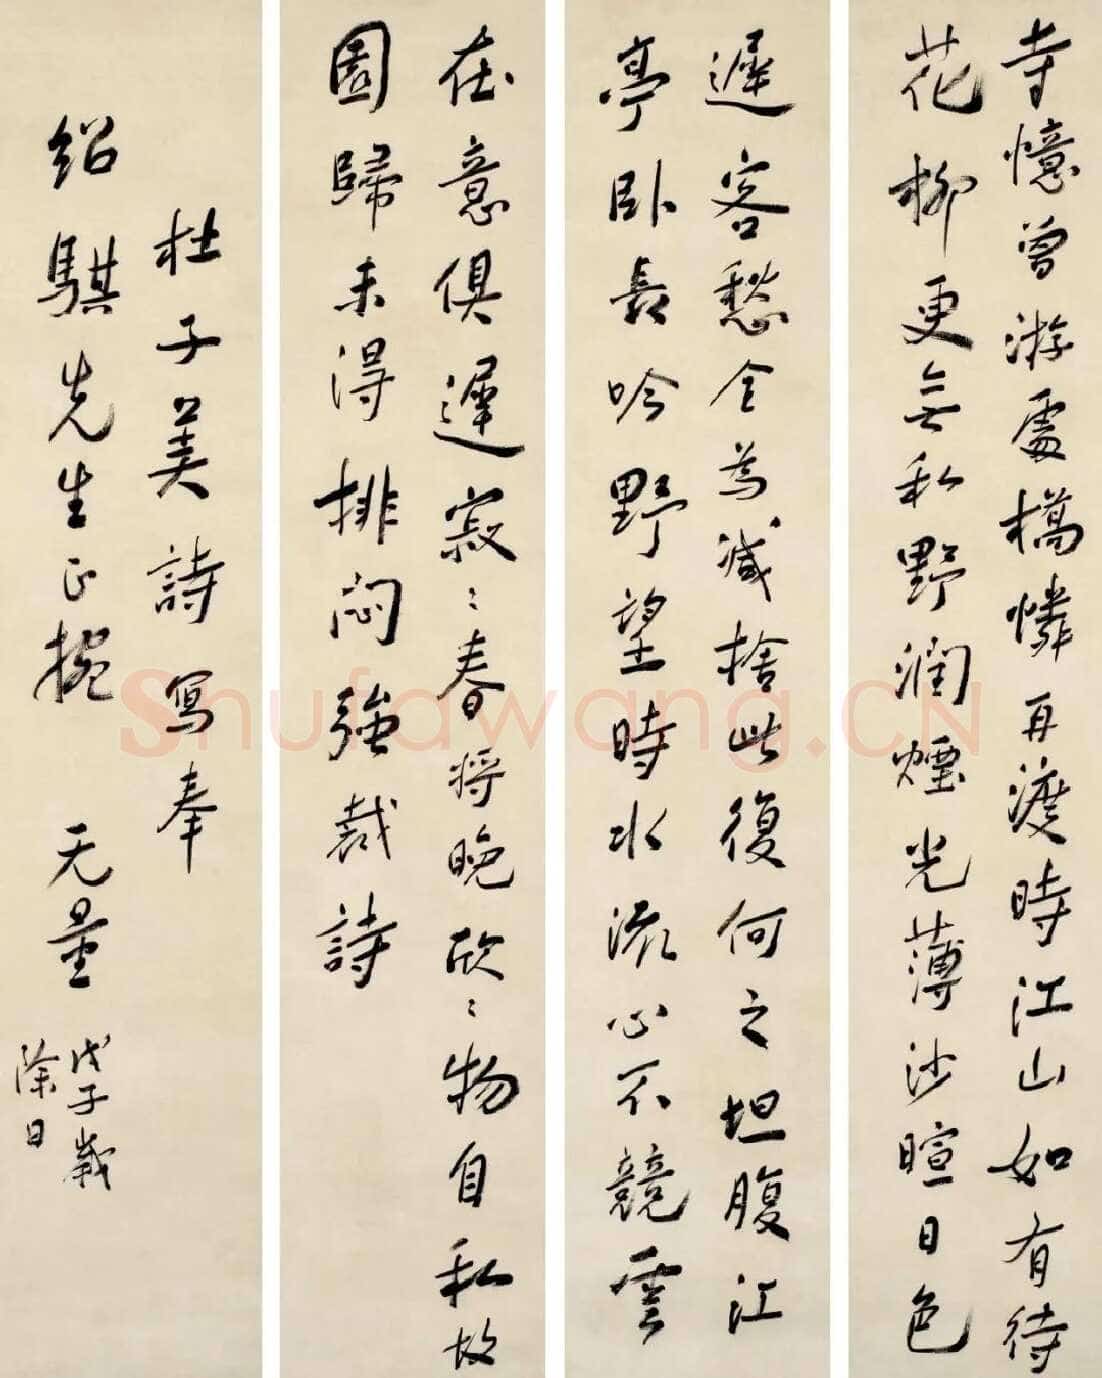 寺憶曾游處橋憐再渡時江山如有待
花柳更無私野潤煙光薄沙暄日色
遲客愁全為減捨此復何之坦腹江
亭臥長吟野望時水流心不競雲
在意俱遲寂〻春將晚欣〻物自私故
園歸未得排悶強裁詩
杜子美詩寫奉
紹騏先生正捥 无量
戊子歲
除日
Shufawang.CN